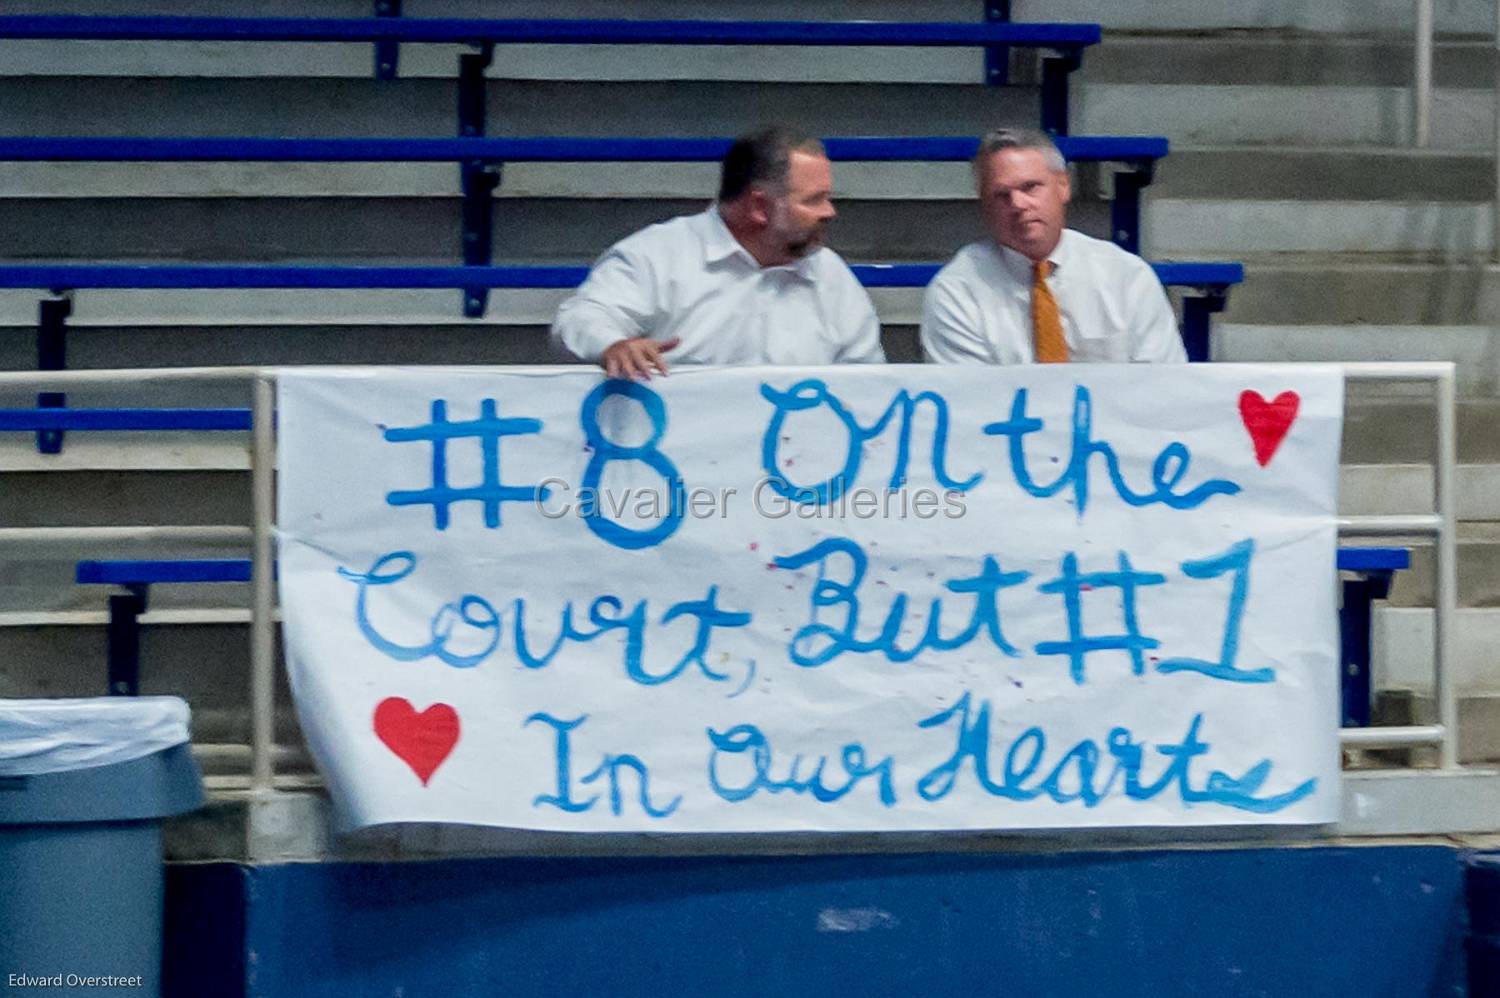 #8 On the
Court, But #1
In Our Hearts
Cavalier Galleries
Edward Overstreet